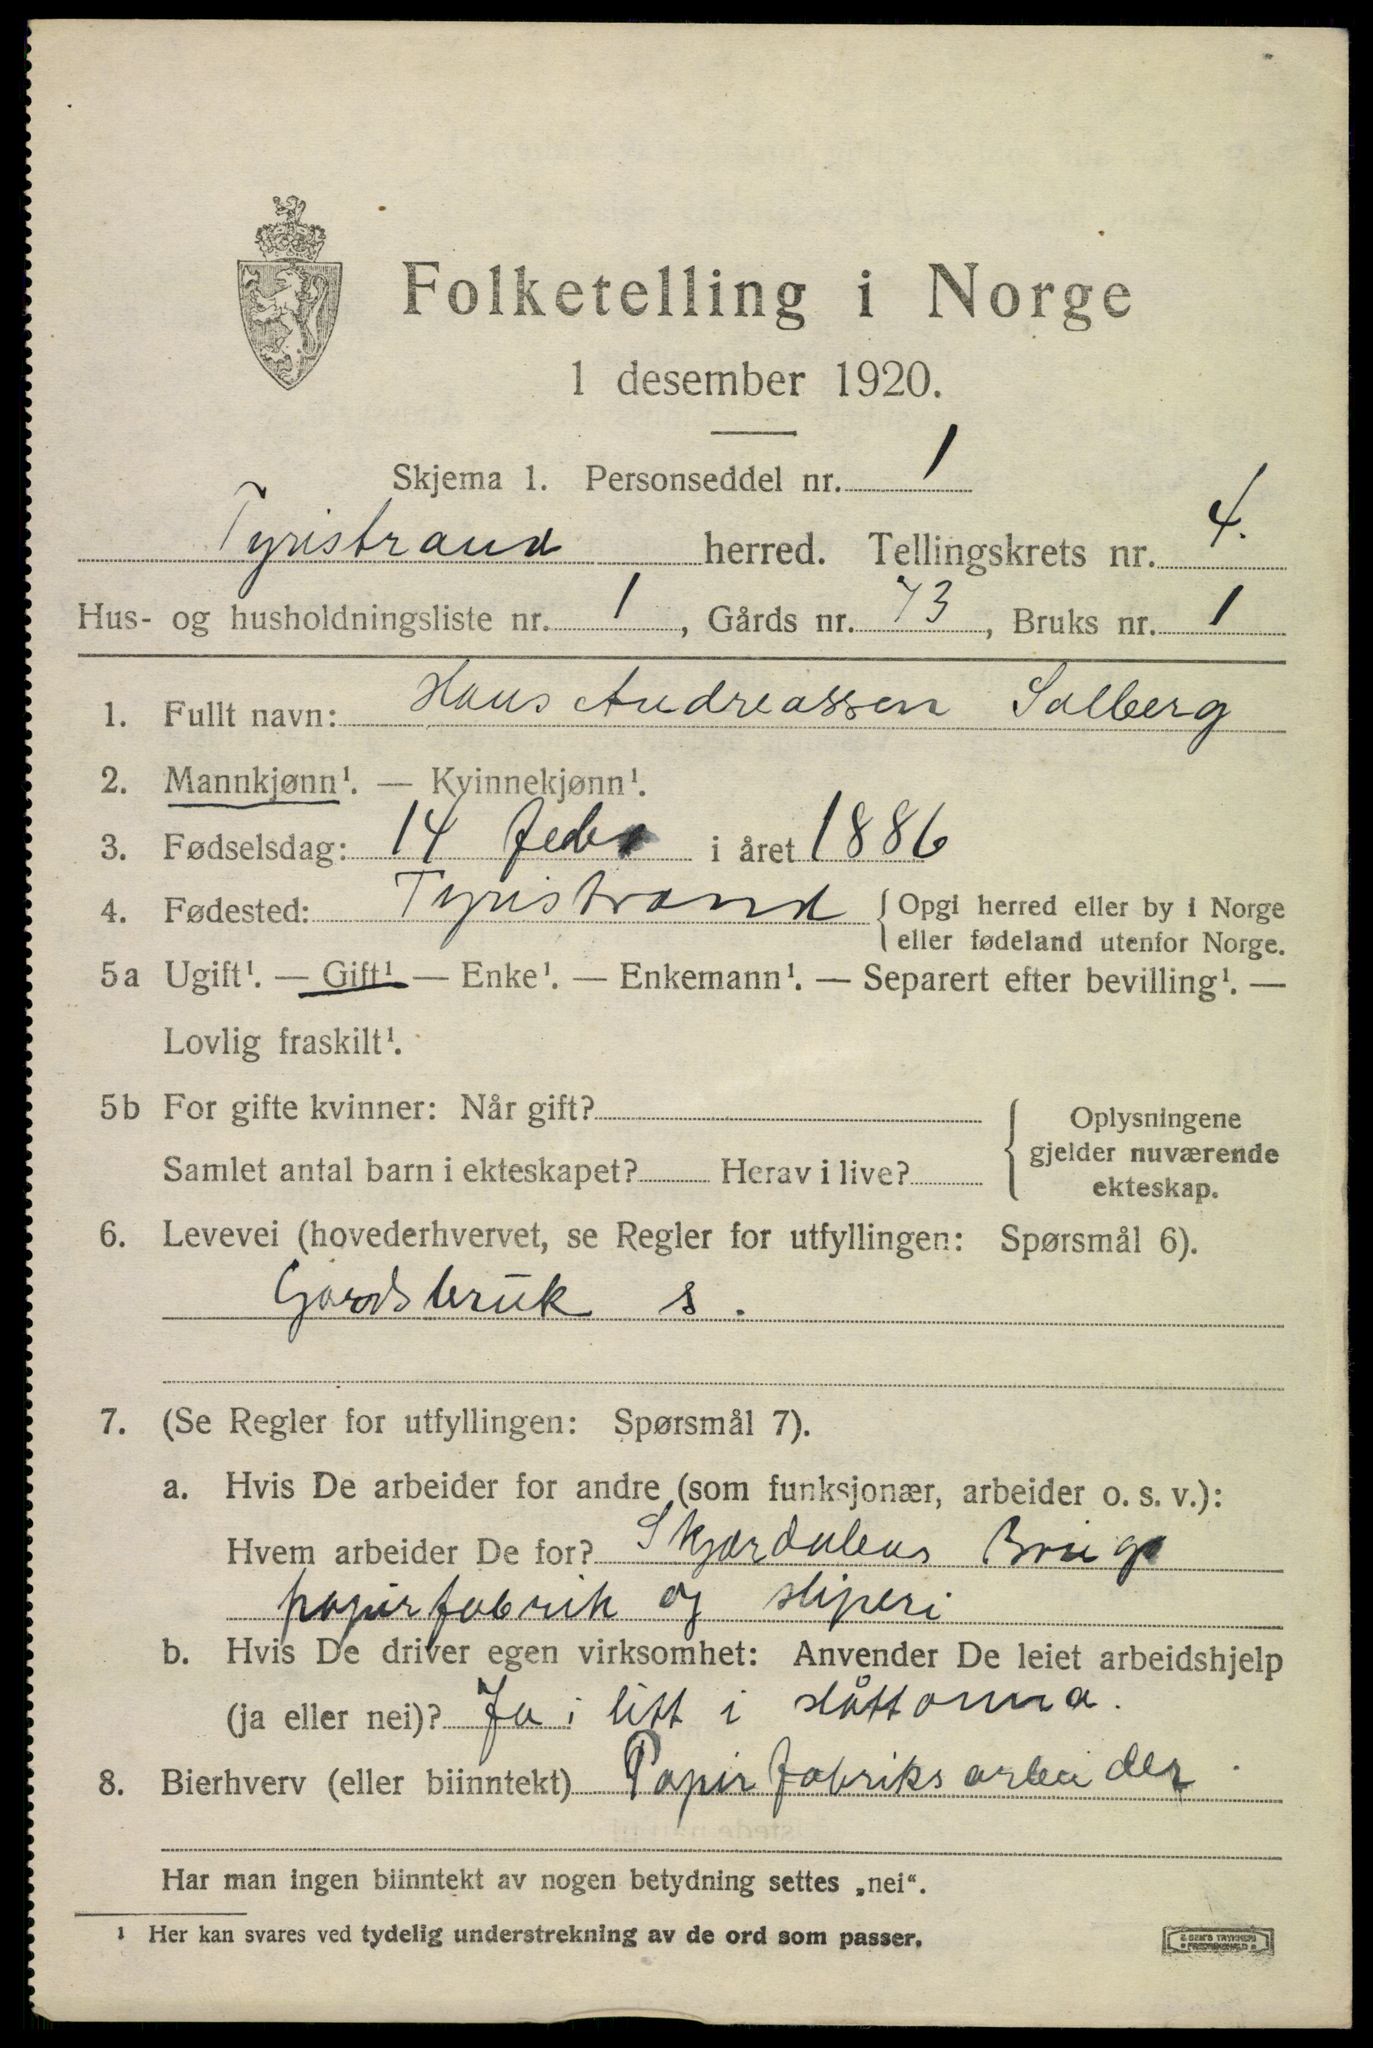 Folketelling i Norge
1 desember 1920.
Skjema 1. Personseddel nr. 1
Tyristrand herred. Tellingskrets nr. 4.
Hus- og husholdningsliste nr. 1, Gårds nr. 73, Bruks nr. 1
1. Fullt navn: Hans Andreassen Solberg
2. Mannkjønn¹. — Kvinnekjønn¹.
3. Fødselsdag: 14 febr i året 1886
4. Fødested: Tyristrand { Opgi herred eller by i Norge
eller fødeland utenfor Norge.
5a Ugift¹. — Gift¹ — Enke¹. — Enkemann¹. — Separert efter bevilling¹. —
Lovlig fraskilt¹.
5b For gifte kvinner: Når gift? { Oplysningene
gjelder nuværende
Samlet antal barn i ekteskapet? Herav i live? ekteskap.
6. Levevei (hovederhvervet, se Regler for utfyllingen: Spørsmål 6).
Gardsbruk s.
7. (Se Regler for utfyllingen: Spørsmål 7).
a. Hvis De arbeider for andre (som funksjonær, arbeider o. s. v.):
Hvem arbeider De for? Skjærdalens Brug
papirfabrik og sliperi
b. Hvis De driver egen virksomhet: Anvender De leiet arbeidshjelp
(ja eller nei)? Ja i litt i slåttonna.
8. Bierhverv (eller biinntekt) Papirfabriksarbeider
Har man ingen biinntekt av nogen betydning settes „nei“.
¹ Her kan svares ved tydelig understrekning av de ord som passer.